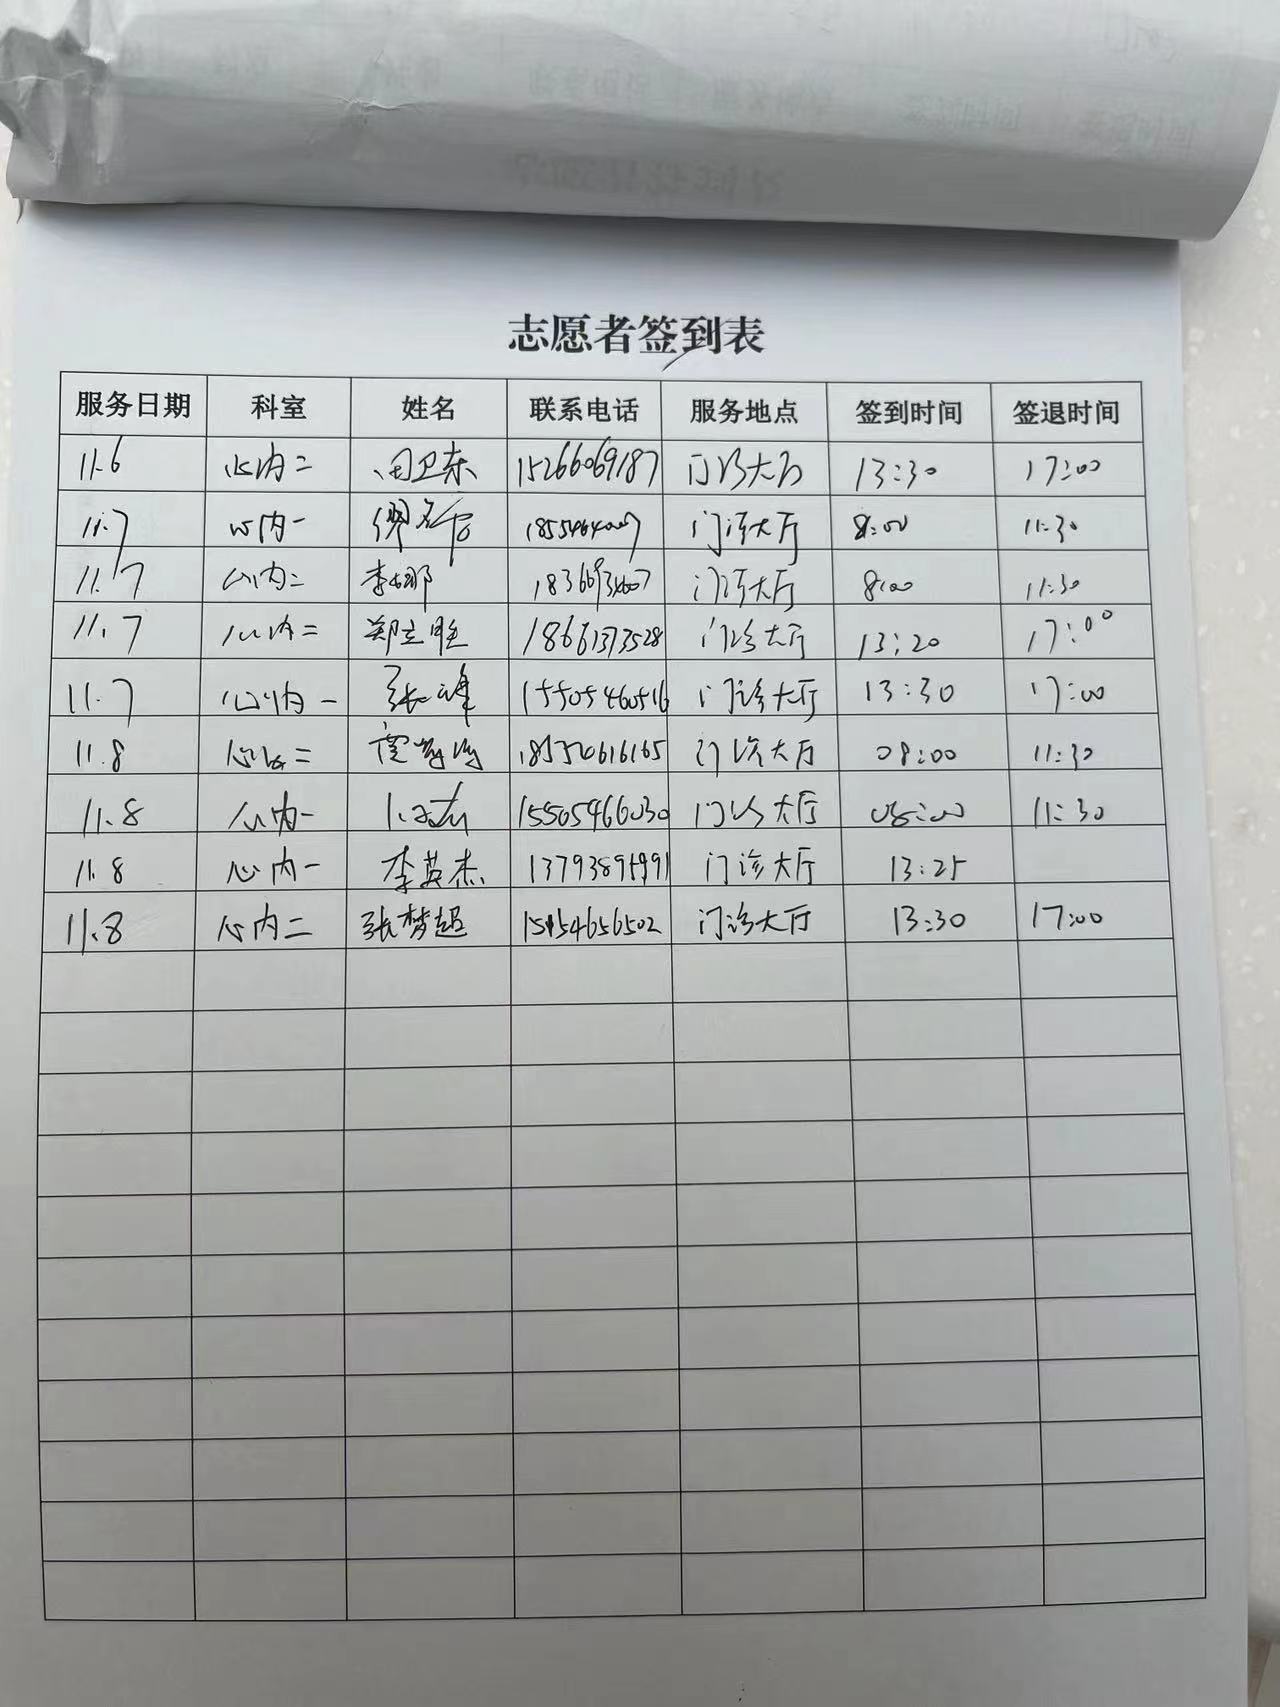 志愿者签到表
服务日期 科室 姓名 联系电话 服务地点 签到时间 签退时间
11.6 心内二 田卫东 15266069187 门诊大厅 13:30 17:00
11.7 心内一 门诊大厅 8:00 11:30
11.7 心内二 李娜 门诊大厅 8:00 11:30
11.7 心内二 郑立胜 18661373528 门诊大厅 13:20 17:00
11.7 心内一 张峰 15505460516 门诊大厅 13:30 17:00
11.8 心内二 门诊大厅 08:00 11:30
11.8 心内一 15505466030 门诊大厅 08:00 11:30
11.8 心内一 李英杰 13793895991 门诊大厅 13:25
11.8 心内二 张梦超 15154656502 门诊大厅 13:30 17:00